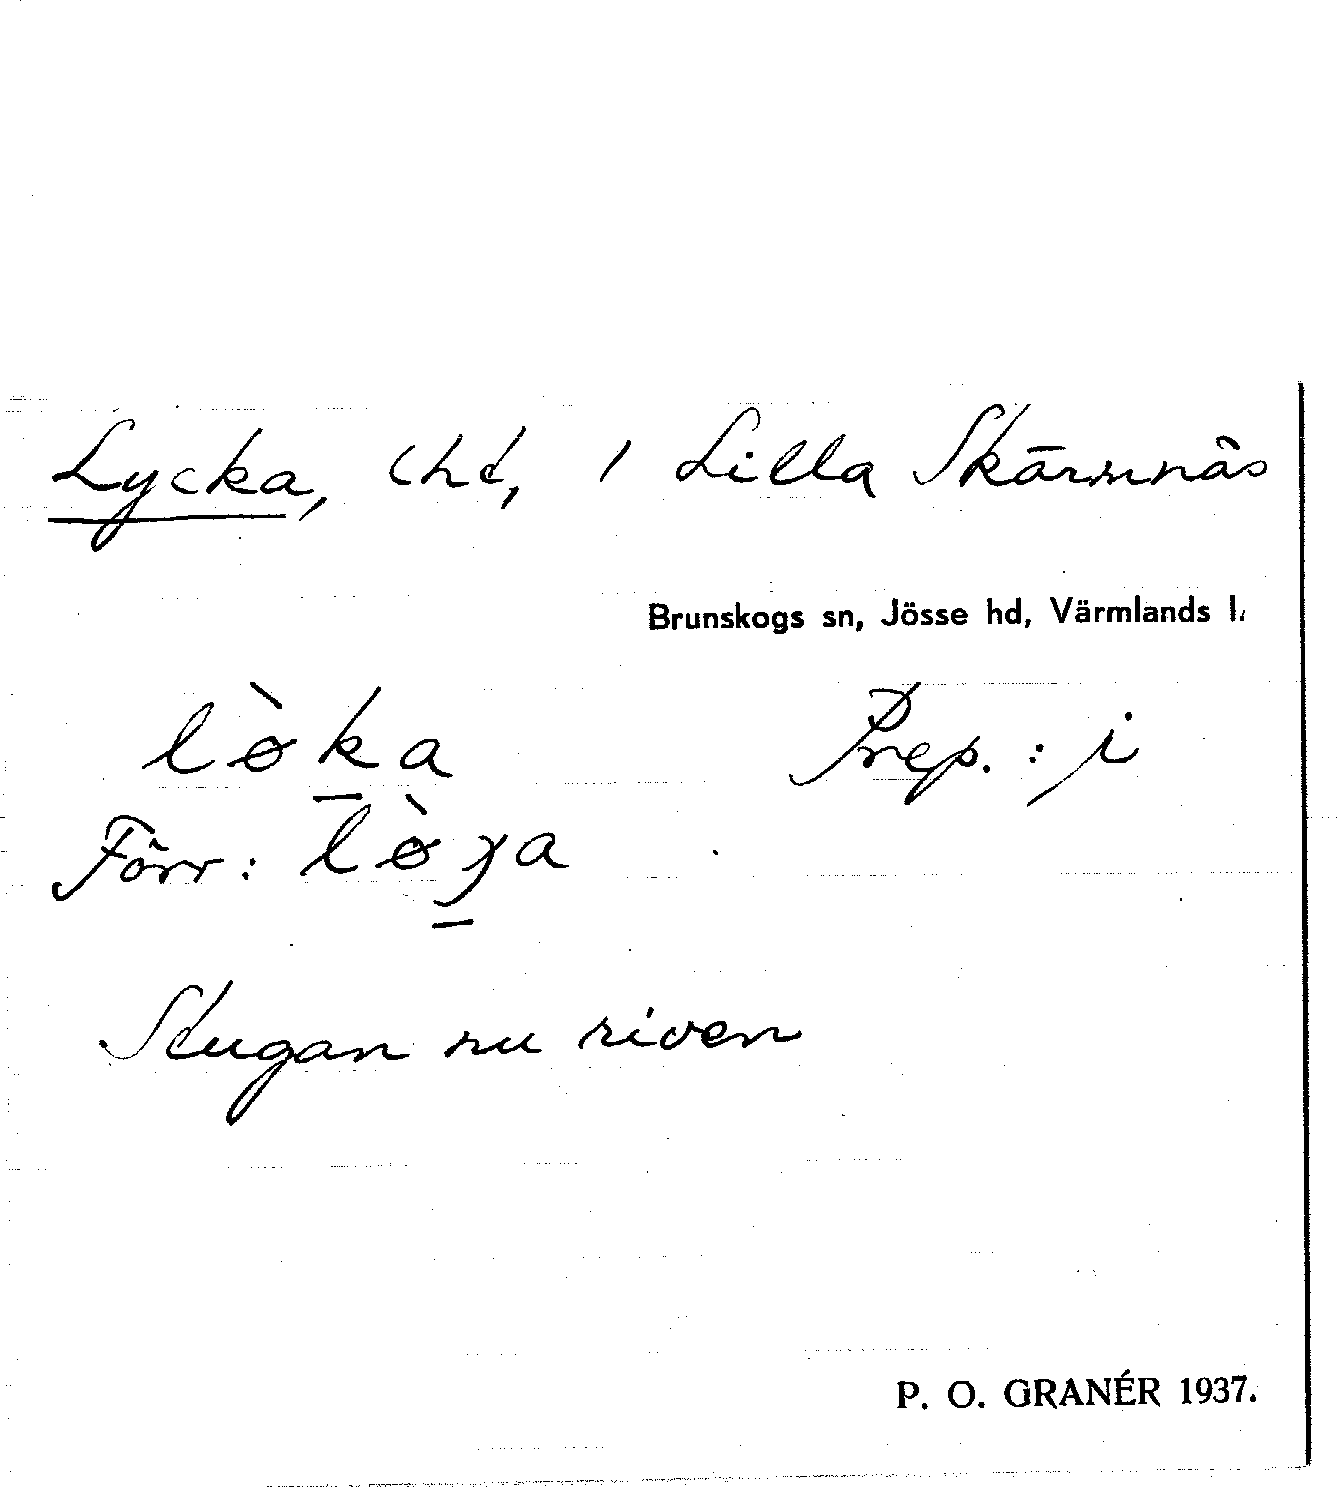 Lycka, lht, / Lilla Skärmnäs
Brunskogs sn, Jösse hd, Värmlands l.
lø̀k̠a Prep.: i
Förr: lø̀ɣ̠a
Stugan nu riven
P. O. GRANÉR 1937.